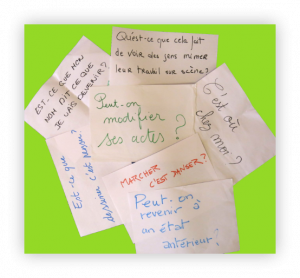 Qu'est-ce que cela fait
de voir des gens mimer
leur travail sur scène?
EST-CE QUE MON
NOM DIT CE QUE
JE VAIS DEVENIR?
Peut-on
modifier
ses actes?
C'est où
chez moi?
Est-ce que
c'est
MARCHER
C'EST DANSER?
Peut-on
revenir à
un état
antérieur?